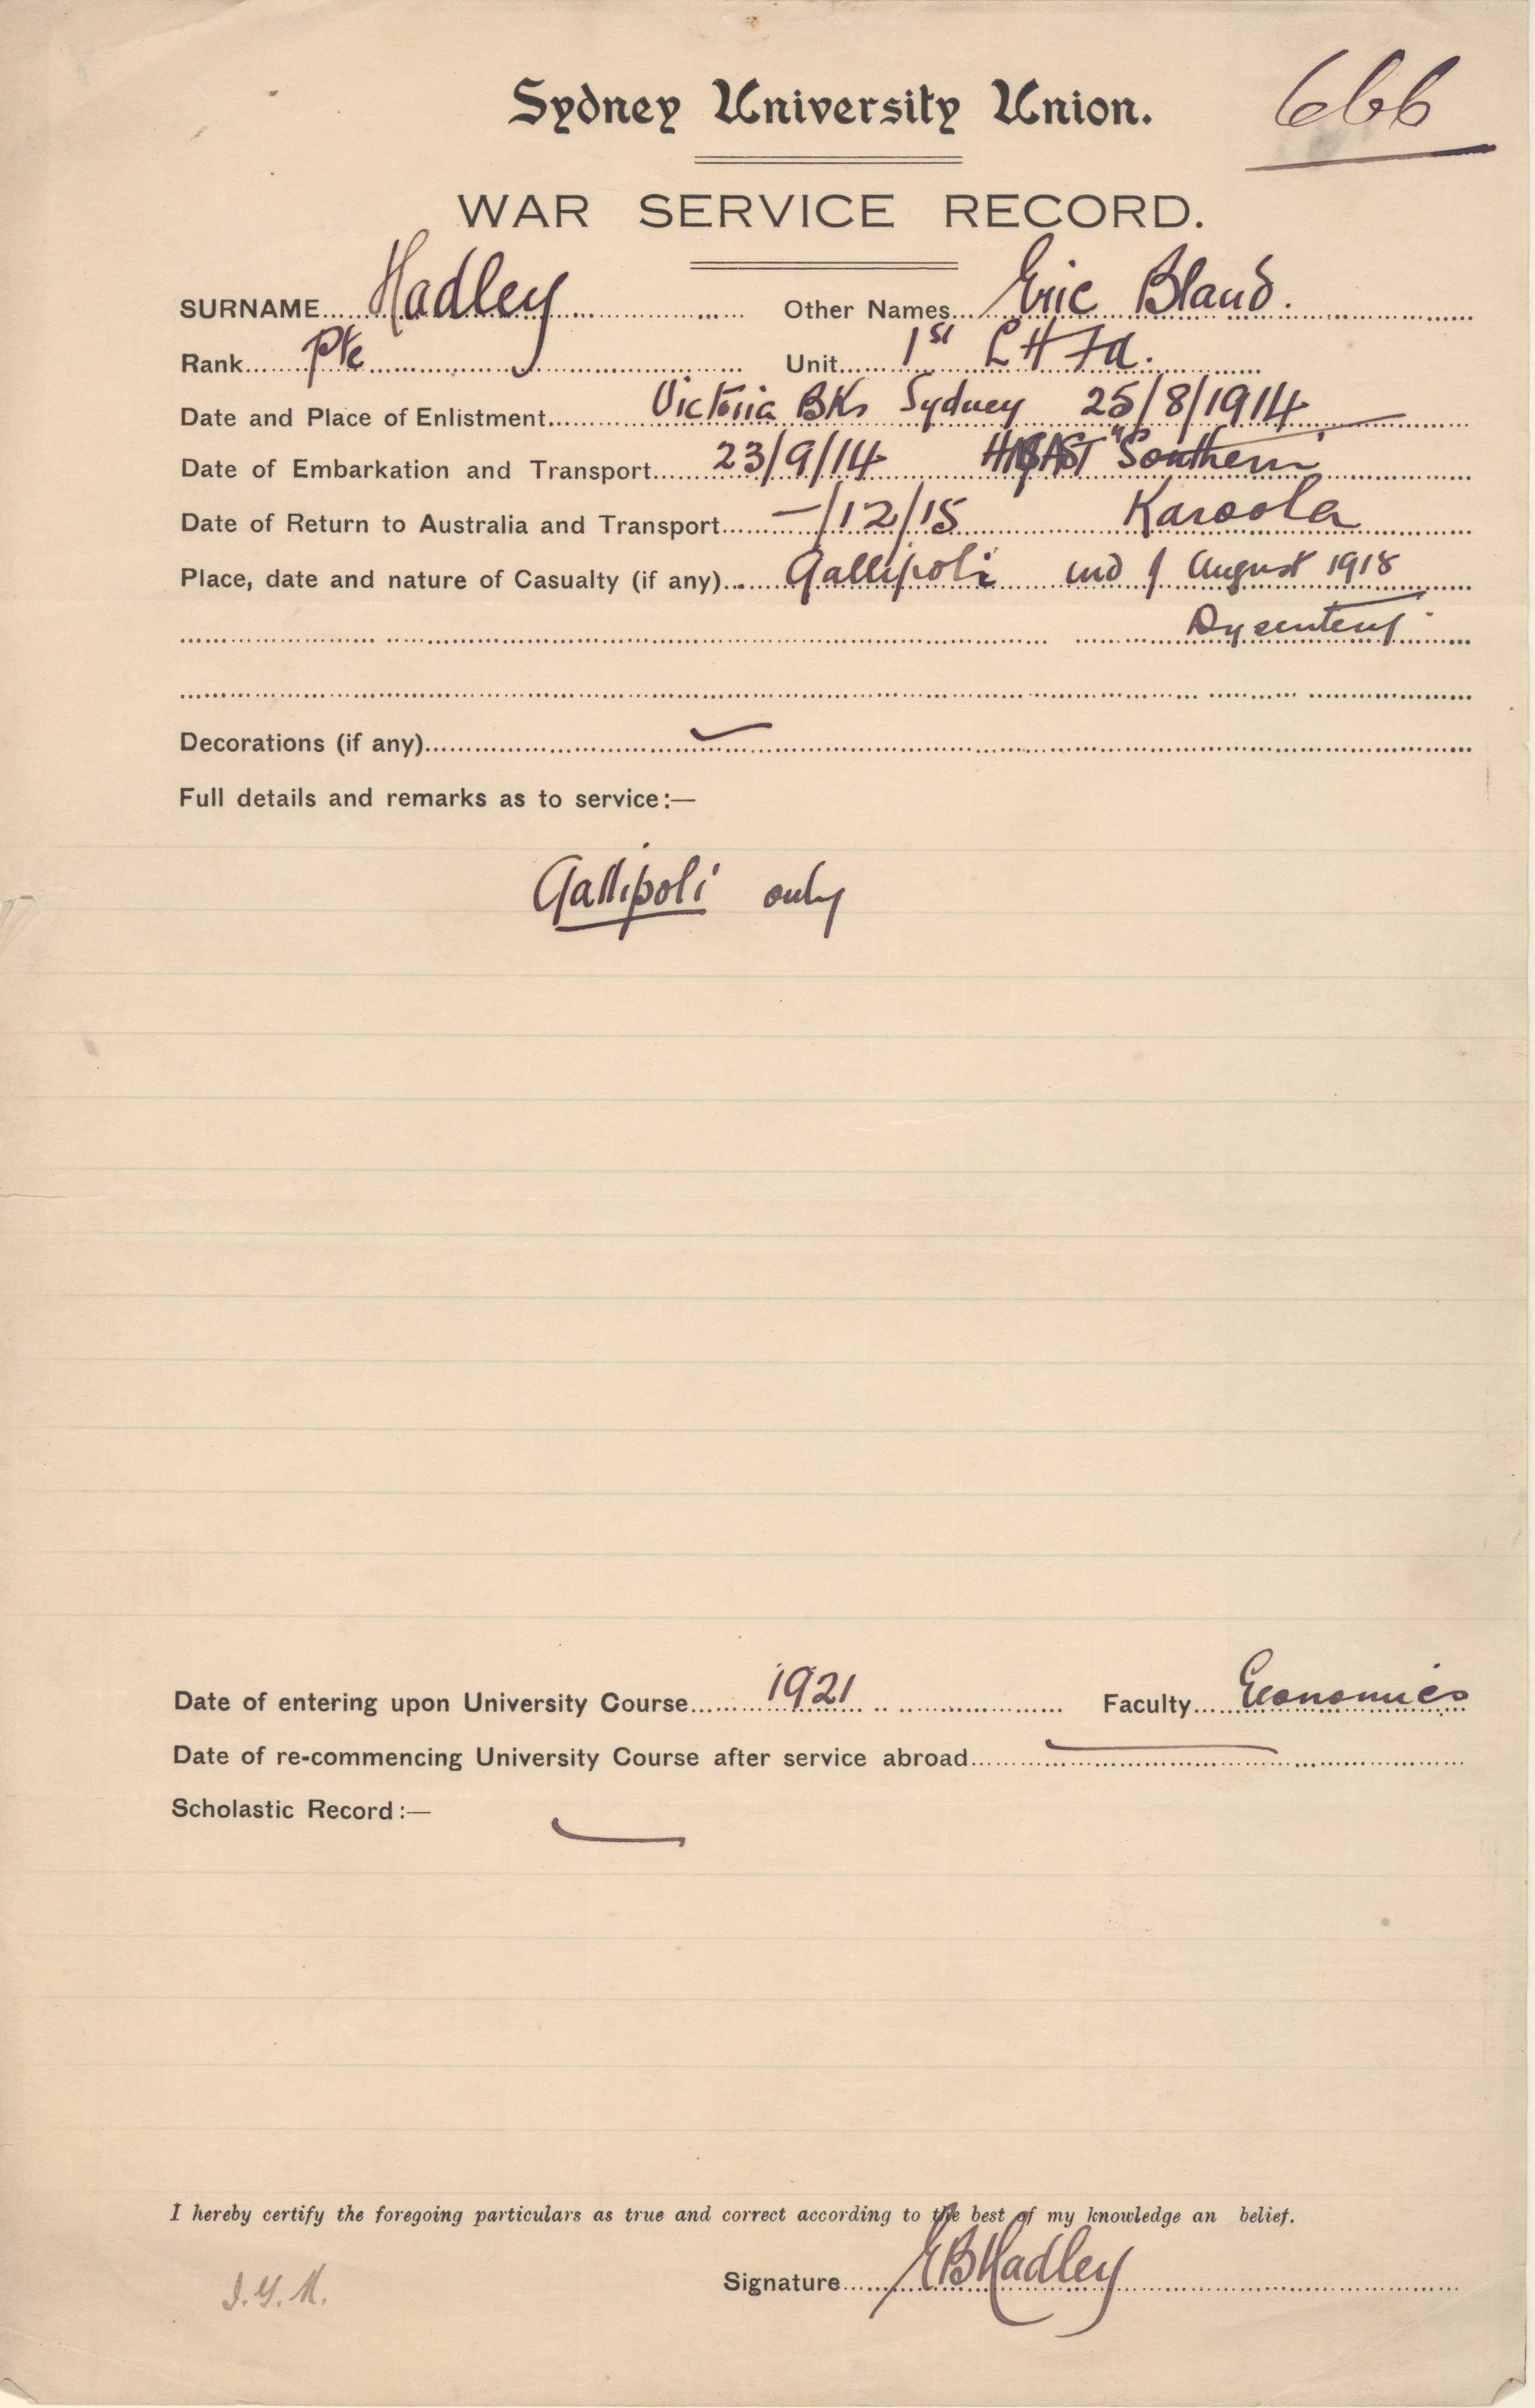 Sydney University Union. 666
WAR SERVICE RECORD.
SURNAME Hadley Other Names Eric Bland.
Rank Pte Unit 1st LH Fd.
Date and Place of Enlistment Victoria BKs Sydney 25/8/1914
Date of Embarkation and Transport 23/9/14 "Southern"
Date of Return to Australia and Transport —/12/15 Karoola
Place, date and nature of Casualty (if any) Gallipoli August 1915
Dysentery.
Decorations (if any)
Full details and remarks as to service:—
Gallipoli only
Date of entering upon University Course 1921 Faculty Economics
Date of re-commencing University Course after service abroad
Scholastic Record:—
I hereby certify the foregoing particulars as true and correct according to the best of my knowledge an belief.
Signature EBHadley